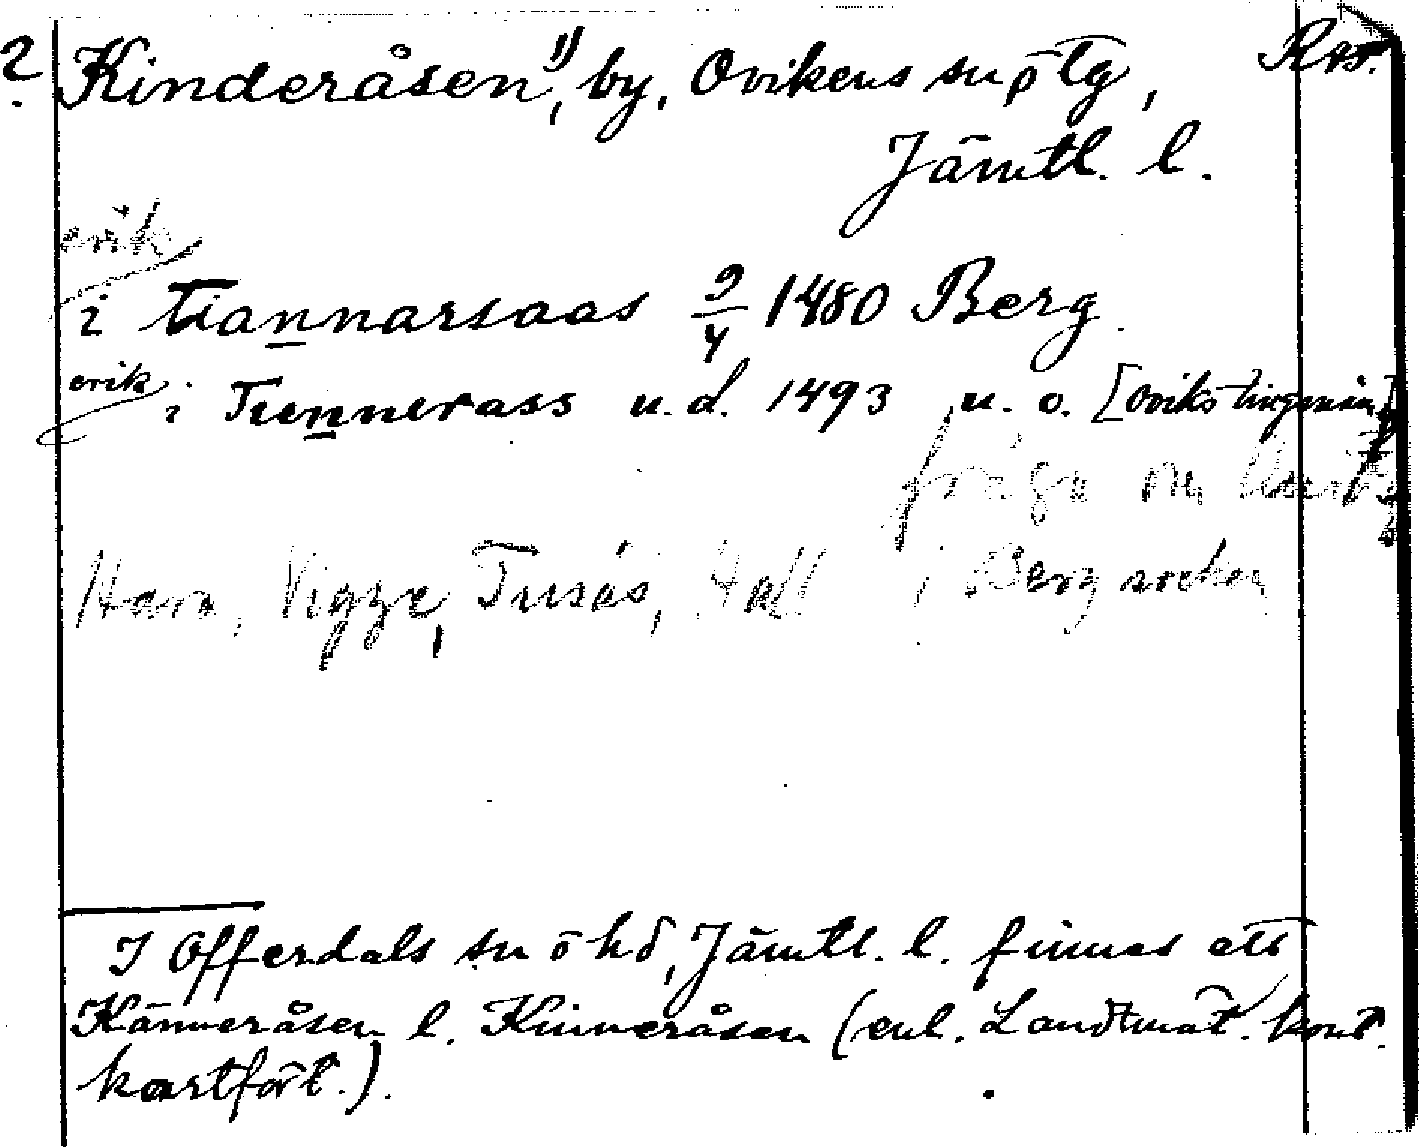 ? Kinderåsen, 1) by, Ovikens sn o tg, 
Jämtl. l.
erik
i tiannarsaas 9/4 1480 Berg
erik i Tiennerass u. d. 1493 u. o. [Oviks tingsmän]
fråga om
Hara, Vigge, Tusås, Hall i Berg socken
I Offerdals sn o hd, Jämtl. l. finnes ett
Känneråsen l. Kinneråsen (enl. Landtmät. kont.
kartfört.).